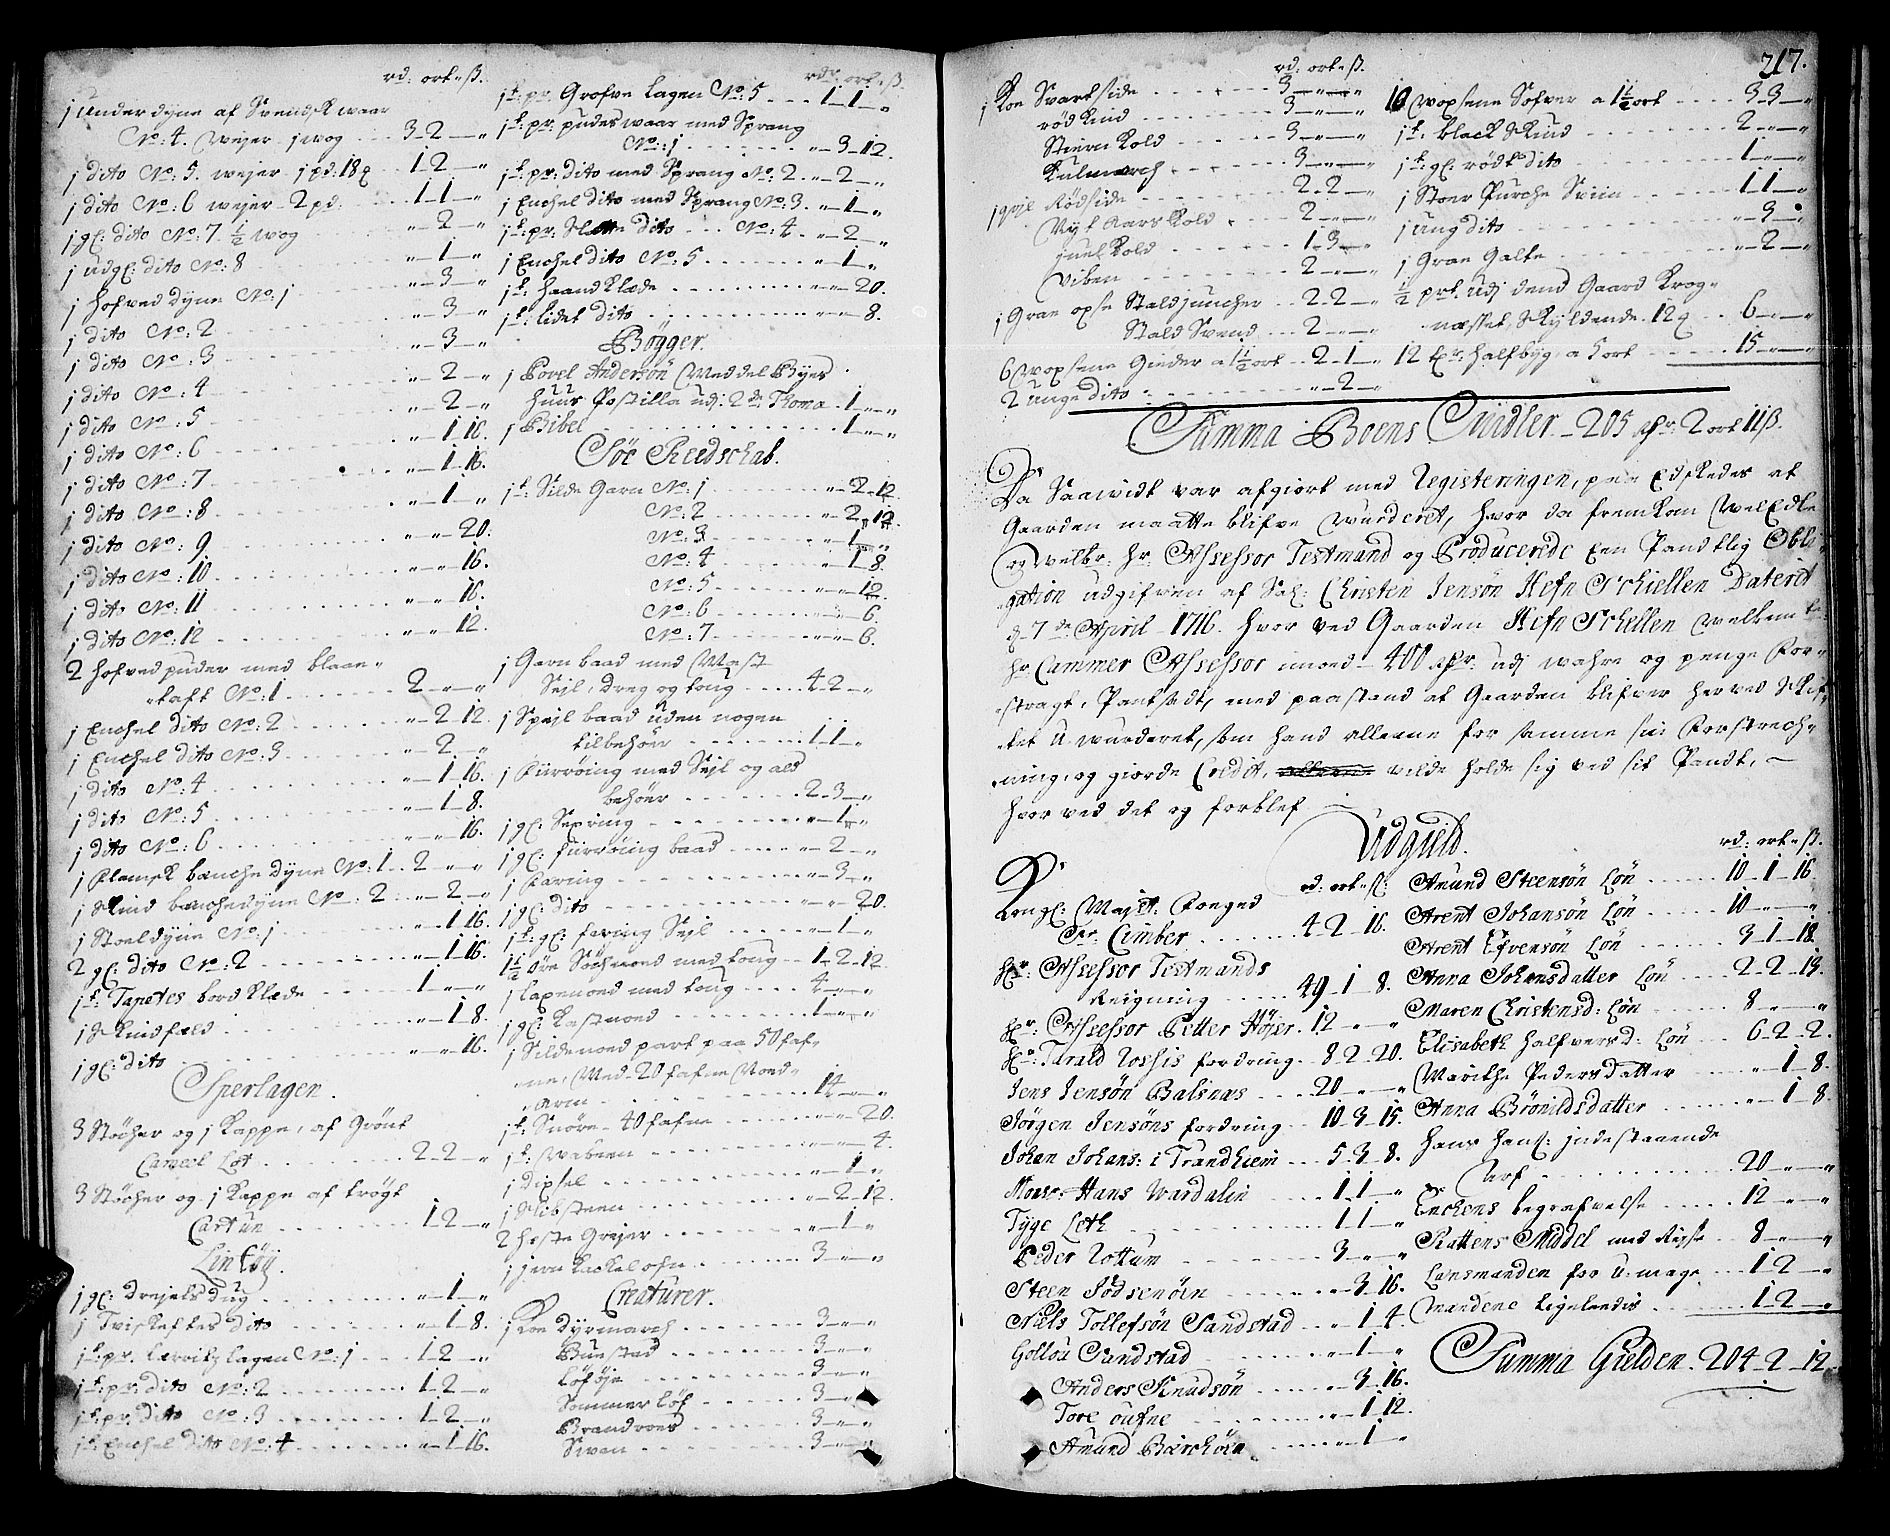 rd: ort. ß.
j Underdÿne af Svendsk waar
No: 4. weÿer j wog 3-2-"
j dito No: 5. weÿer j pd: 18
j dito No: 6 weÿer 2 pd. 1-1-"
j gl: dito No: 7. ½ wog "-2-"
j udgl: dito No: 8 "-1-"
j Hofved dÿne No: j "-3-"
j dito No: 2 "-3-"
j dito No: 3 "-3-"
j dito No: 4 "-2-"
j dito No: 5 "-2-"
j dito No: 6 "-1-16.
j dito No: 7 "-1-16.
j dito No: 8 "-1-"
j dito No: 9 "-"-20.
j dito No: 10 "-"-16.
j dito No: 11 "-"-16.
j dito No: 12 "-"-12.
2 hofvedpuder med blaae
taft No: 1 2-"-"
j Enchel dito No: 2 "-2-12.
j Enchel dito No: 3 "-2-"
j dito No: 4 "-1-16.
j dito No: 5 "-1-8.
j dito No: 6 "-"-16.
j Flamsk banche dÿne No: 1 2-"-"
j Skind banchedÿne No: 2 "-2-"
j Stoeldÿne No: j "-1-16.
2 gl: dito No: 2 "-1-16.
j st: Tapetes bord klæde "-1-"
j Skindfeld "-1-8.
j gl: dito "-"-16.
Sperlagen.
3 Stöcher og j Kappe, af Grönt
Cameel Lot 2-2-"
3 Stöcher og j Kappe af trögt
Cartun 1-2-"
Lintöÿ.
j gl: Dreÿels dug "-1-"
j Tviskeftes dito "-1-8.
j st: pr. Lærritz lagen No: j 1-2-"
j st: pr: dito No: 2 1-2-"
j st: pr: dito No: 3 1-2-"
j st: Enchel dito No: 4 "-1-16.
rdr. ort. ß.
j st: pr: Grofve Lagen No: 5 1-1-"
j st: pr: pudes waar med Sprang
No: j "-3-12.
j st: pr: dito med Sprang No: 2 "-2-"
j Enchel dito med Sprang No: 3. "-1-"
j st: pr: Slette dito No: 4 "-2-"
j Enchel dito No: 5 "-1-"
j st: haand Klæde "-"-20.
j st: lidet dito "-"-8.
Bögger.
j Povel Andersön Weddel Bÿes
Huus Postilla udj 2 de Thoma 1-"-"
j Bibel 1-"-"
Söe Reedschab.
j st: Silde Garn No: j "-2-12.
No: 2 "-2-12.
No: 3 "-1-"
No: 4 "-1-8.
No: 5 "-"-12.
No: 6 "-"-6.
No: 7 "-"-6.
j Garn baad med Mast
Seÿl, Dreg og toug 4-2-"
j Speÿl baad uden nogen
tilbehöer 1-1-"
j Fürröing med Seÿl og ald
behöer 2-3-"
j gl: Sexring "-1-"
j gl: fürröing baad "-2-"
j Faring "-3-"
j gl: dito "-"-20.
j st: gl: faring Seÿl "-1-"
1½ öre Söchnoed med toug 1-2-12.
j laxenoed med toug 4-"-"
j gl: Kastnoed 1-"-"
j Sildenoed part paa 50 faf-
ne, Med 20 fafne Noed-
arm 14-"-"
j st: Snöre 40 fafne "-"-20.
j st: wabeen "-"-4.
j Dipsel "-1-"
j Slibsteen "-2-12.
2 heste Greÿer "-1-"
j jern kackelofn 3-"-"
Creaturer.
j Koe Dÿrmarch 3-"-"
Buestad 3-"-"
Löföÿe 3-"-"
Sommerlöf 3-"-"
Brandroes 3-"-"
Sivan 3-"-"
217.
rd: ort. ß.
j Koe Svartside 3-"-"
rödkind 3-"-"
Stiern Kold 3-"-"
Kulmarch 3-"-"
j qvjl Rödside 2-2-"
Nÿt Aars Kold 2-"-"
juel Kold 1-3-"
Viben 2-"-"
j Grae oxse Staldjuncher 2-2-"
Stald Svend 2-"-"
6 woxsene Gieder a 1½ ort 2-1-"
2 unge dito "-2-"
10 woxsene Sofver a 1½ ort 3-3-"
j st: black Skind 2-"-"
j st: gl: rödt dito 1-"-"
j Stoer Purche Sviin 1-1-"
j ung dito "-3-"
j Grae Galte "-2-"
½ prt. udj dend Gaard Krog-
næsset, Skÿldende 12 6-"-"
12 Tr: Halfbÿg a 5 ort 15-"-"
Summa Boens Midler - 205 rdr: 2 ort 11 ß.
Da Saawidt var afgiort med Registeringen, paa Edskedes at
Gaarden maatte blifve wurderet, hvor da fremkom WelEdle
og welbr: Hr. Assessor Testmand og Producerede Een Pandtlig Obli-
gation udgifven af Sal: Christen Jensön Hefn Schiellen Dateret
d. 7 de April 1716. hvor ved Gaarden Hefn Schellen welbem te
hr. Cammer Assessor imoed 400 rdr. udj wahre og penge For-
stragt, Pantsadt, med paastand at Gaarden blifver her ved Skif-
tet U-wurderet, som hand alleene for samme sin Forstrech-
ning, og giorde Credit, vilde holde sig ved sit Pandt,
hvor ved det og forblef
Udgield.
rd: ort. ß.
Kongl: Maÿst: Foeged
Sr. Cimber 4-2-16.
Hr: Assessor Testmands
Reigning 49-1-8.
Hr: Assessor Petter Höÿer. 12-"-"
Hr: Tarald Roshis fordring 8-2-20.
Jens Jensön Balsnæs 20-"-"
Jörgen Jensöns fordring 10-3-15.
Johan Johans: i Trundhiem 5-3-8.
Monsr: Hans Wardalin 1-1-"
Tÿge Leth 1-1-"
Peder Rottum 3-"-"
Steen Södsenöien "-3-16.
Niels Tollefsön Sandstad "-1-4.
Gollou Sandstad "-1-"
Anders Knudsön "-3-16.
Tore oufne "-1-12.
Amund Barchöen "-1-"
rd: ort. ß.
Amund Steensön Lön 10-1-16
Arent Johansön Lön 10-"-"
Arent Efvensön Lön 3-1-18.
Anna Johansdatter Lön 2-2-19.
Maren Christensd: Lön 8-"-"
Elisabeth Halfversd: Lön 6-2-2.
Marithe Pedersdatter "-1-8.
Anna Brönildsdatter "-1-8.
Hans Hans: jndestaaende
Arf 20-"-"
Enckens begrafvelse 12-"-"
Rattens Middel med Reÿse 8-"-"
Lensmanden for U-mage 1-2-"
Mændene ligeledis 1-2-"
Summa Gielden. 204-2-12.